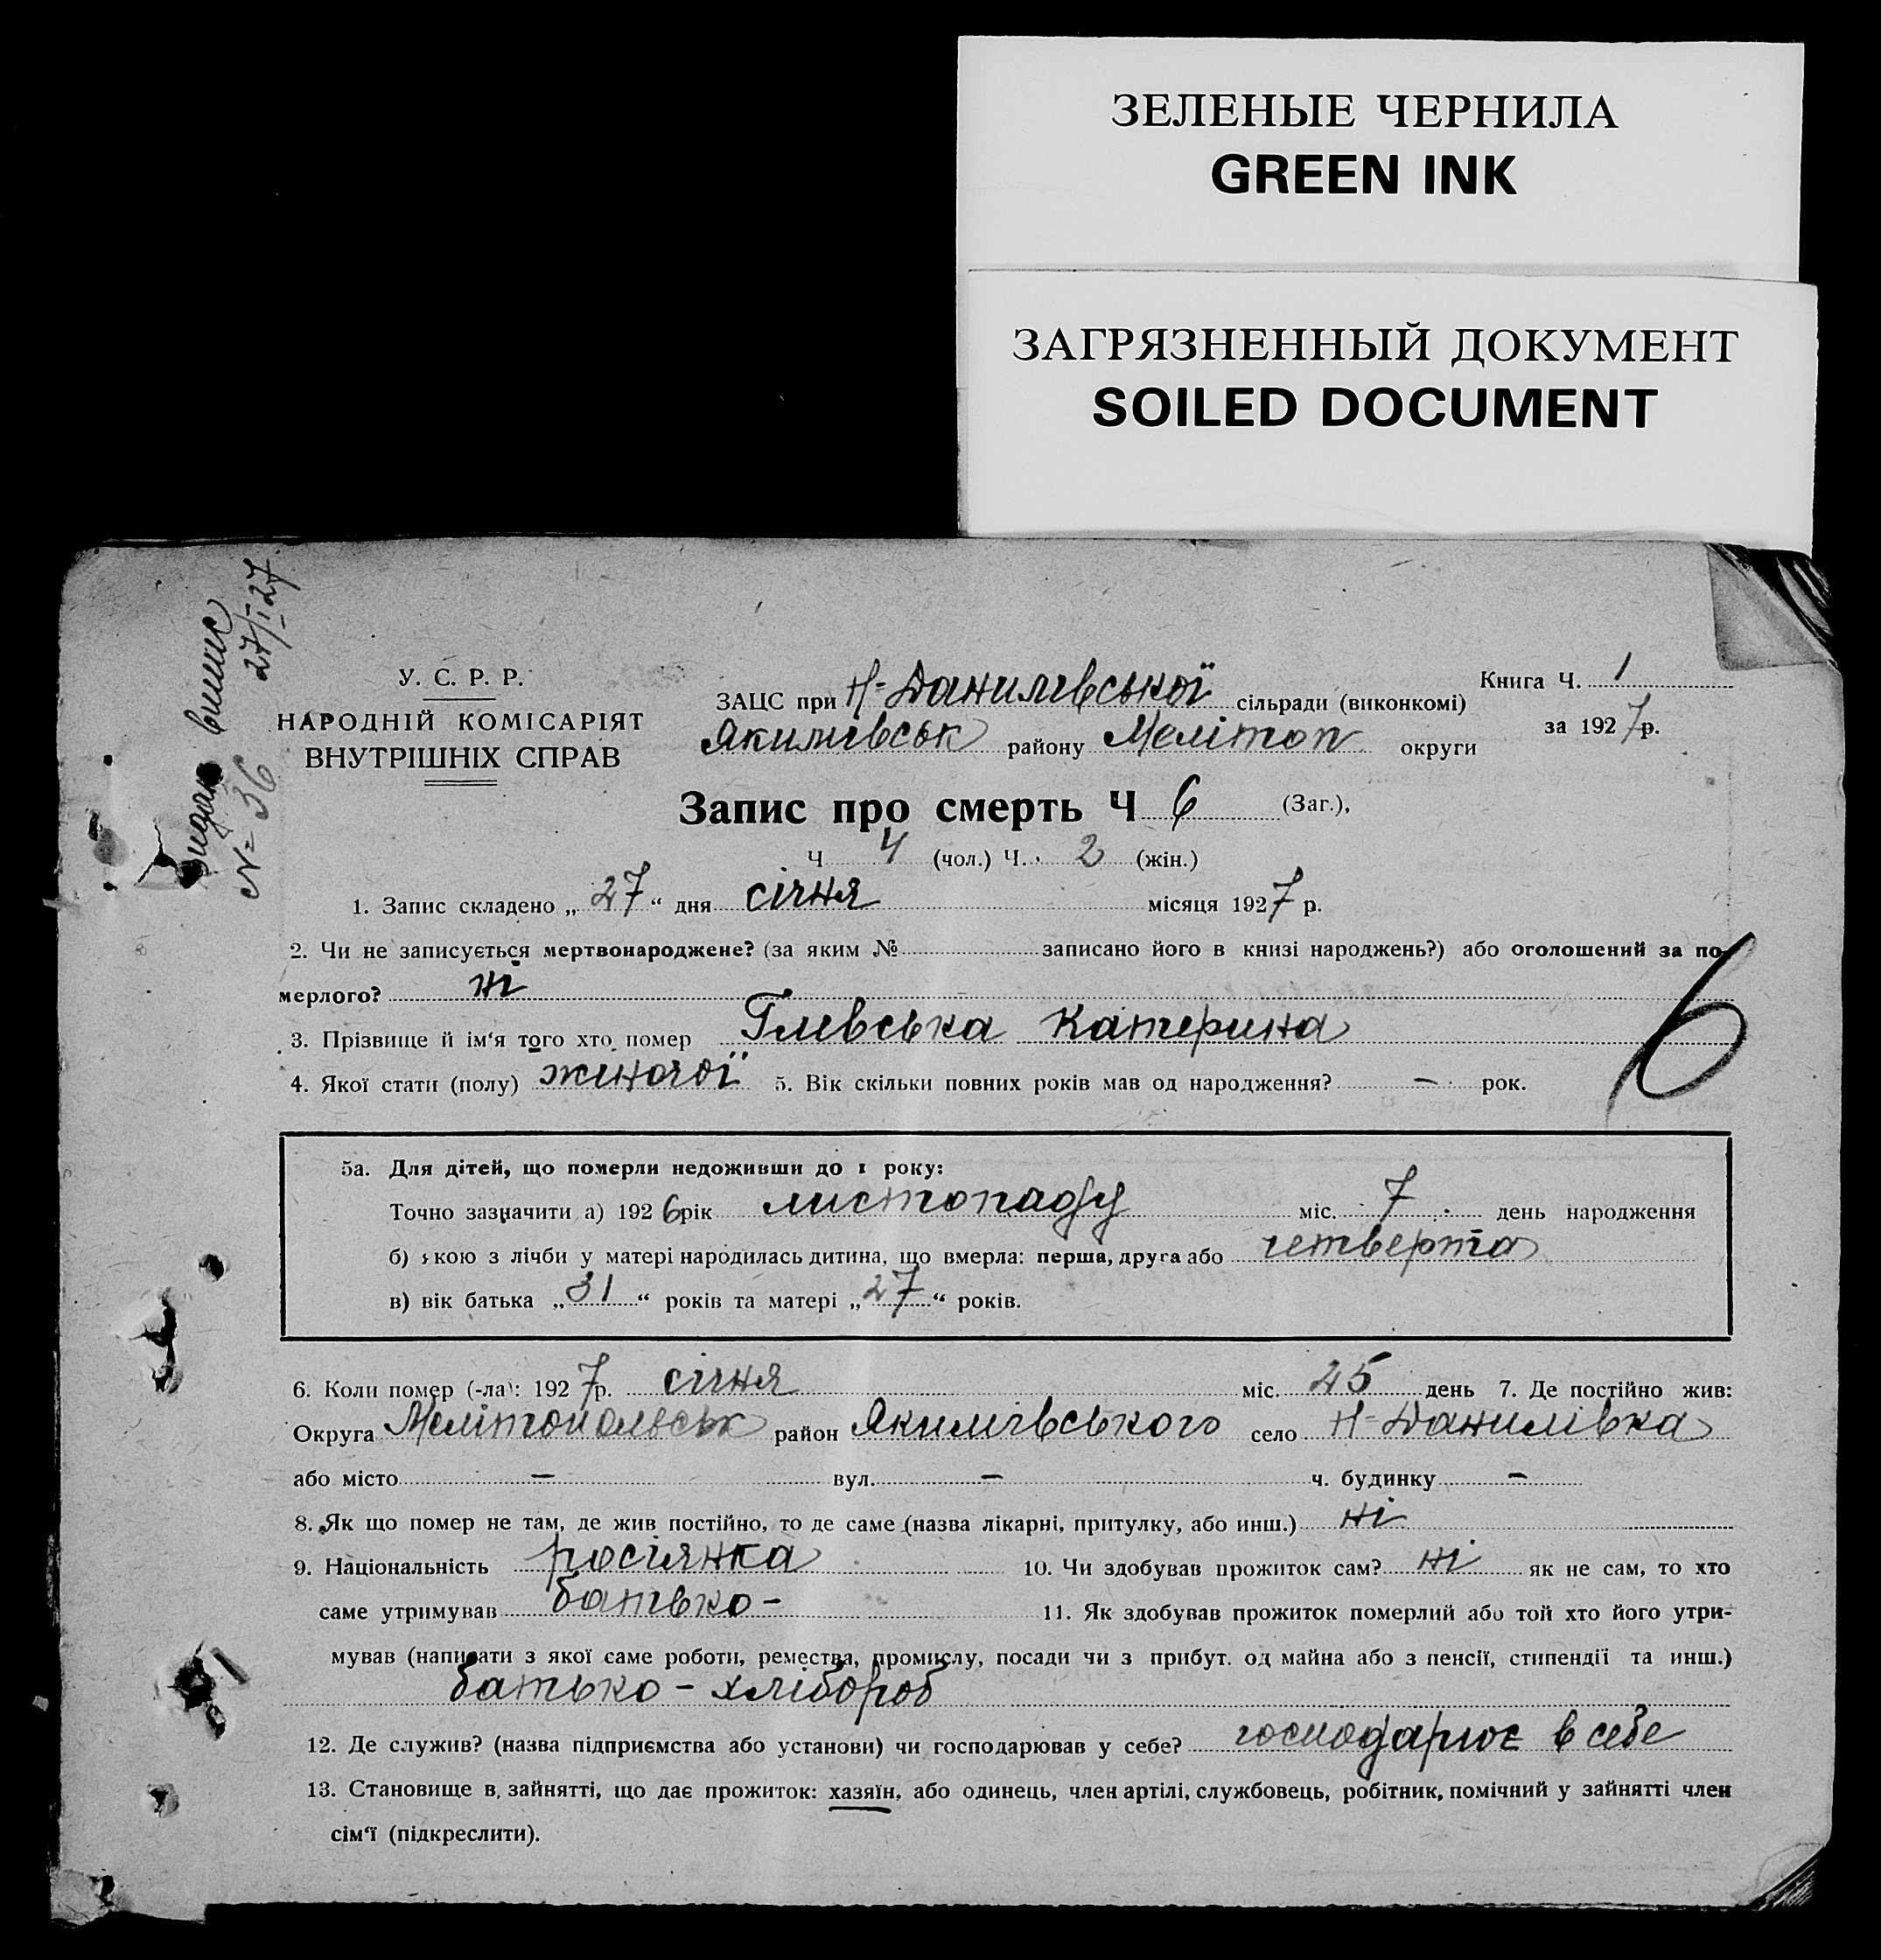 ЗЕЛЕНЫЕ ЧЕРНИЛА
GREEN INK
ЗАГРЯЗНЕННЫЙ ДОКУМЕНТ
SOILED DOCUMENT
Видан випис
№ 36 27/I-27
У. С. Р. Р.
НАРОДНІЙ КОМІСАРІЯТ
ВНУТРІШНІХ СПРАВ
ЗАЦС при Н-Данилівської сільради (виконкомі)
Якимівськ району Мелітоп округи
Книга Ч. 1
за 1927р.
Запис про смерть Ч 6 (Заг.),
Ч 4 (чол.) Ч. 2 (жін.)
1. Запис складено „27“ дня січня місяця 1927 р.
2. Чи не записується мертвонароджене? (за яким № записано його в книзі народжень?) або оголошений за по-
мерлого? ні
3. Прізвище й ім‘я того хто помер Глевська Катерина
6
4. Якої стати (полу) жіночої 5. Вік скільки повних років мав од народження? — рок.
5а. Для дітей, що померли недоживши до 1 року:
Точно зазначити а) 1926рік листопаду міс. 7 день народження
б) кою з лічби у матері народилась дитина, що вмерла: перша, друга або четверта
в) вік батька „31“ років та матері „27“ років.
6. Коли помер (-ла): 1927р. січня міс. 25 день 7. Де постійно жив:
Округа Мелітопольськ район Якимівського село Н-Данилівка
або місто — вул. — ч. будинку —
8. Як що помер не там, де жив постійно, то де саме (назва лікарні, притулку, або инш.) ні
9. Національність росіянка 10. Чи здобував прожиток сам? ні як не сам, то хто
саме утримував батько - 11. Як здобував прожиток померлий або той хто його утри-
мував (написати з якої саме роботи, ремества, промислу, посади чи з прибут. од майна або з пенсії, стипендії та инш.)
батько - хлібороб
12. Де служив? (назва підприємства або установи) чи господарював у себе? господарює в себе
13. Становище в зайнятті, що дає прожиток: хазяїн, або одинець, член артілі, службовець, робітник, помічний у зайнятті член
сім‘ї (підкреслити).